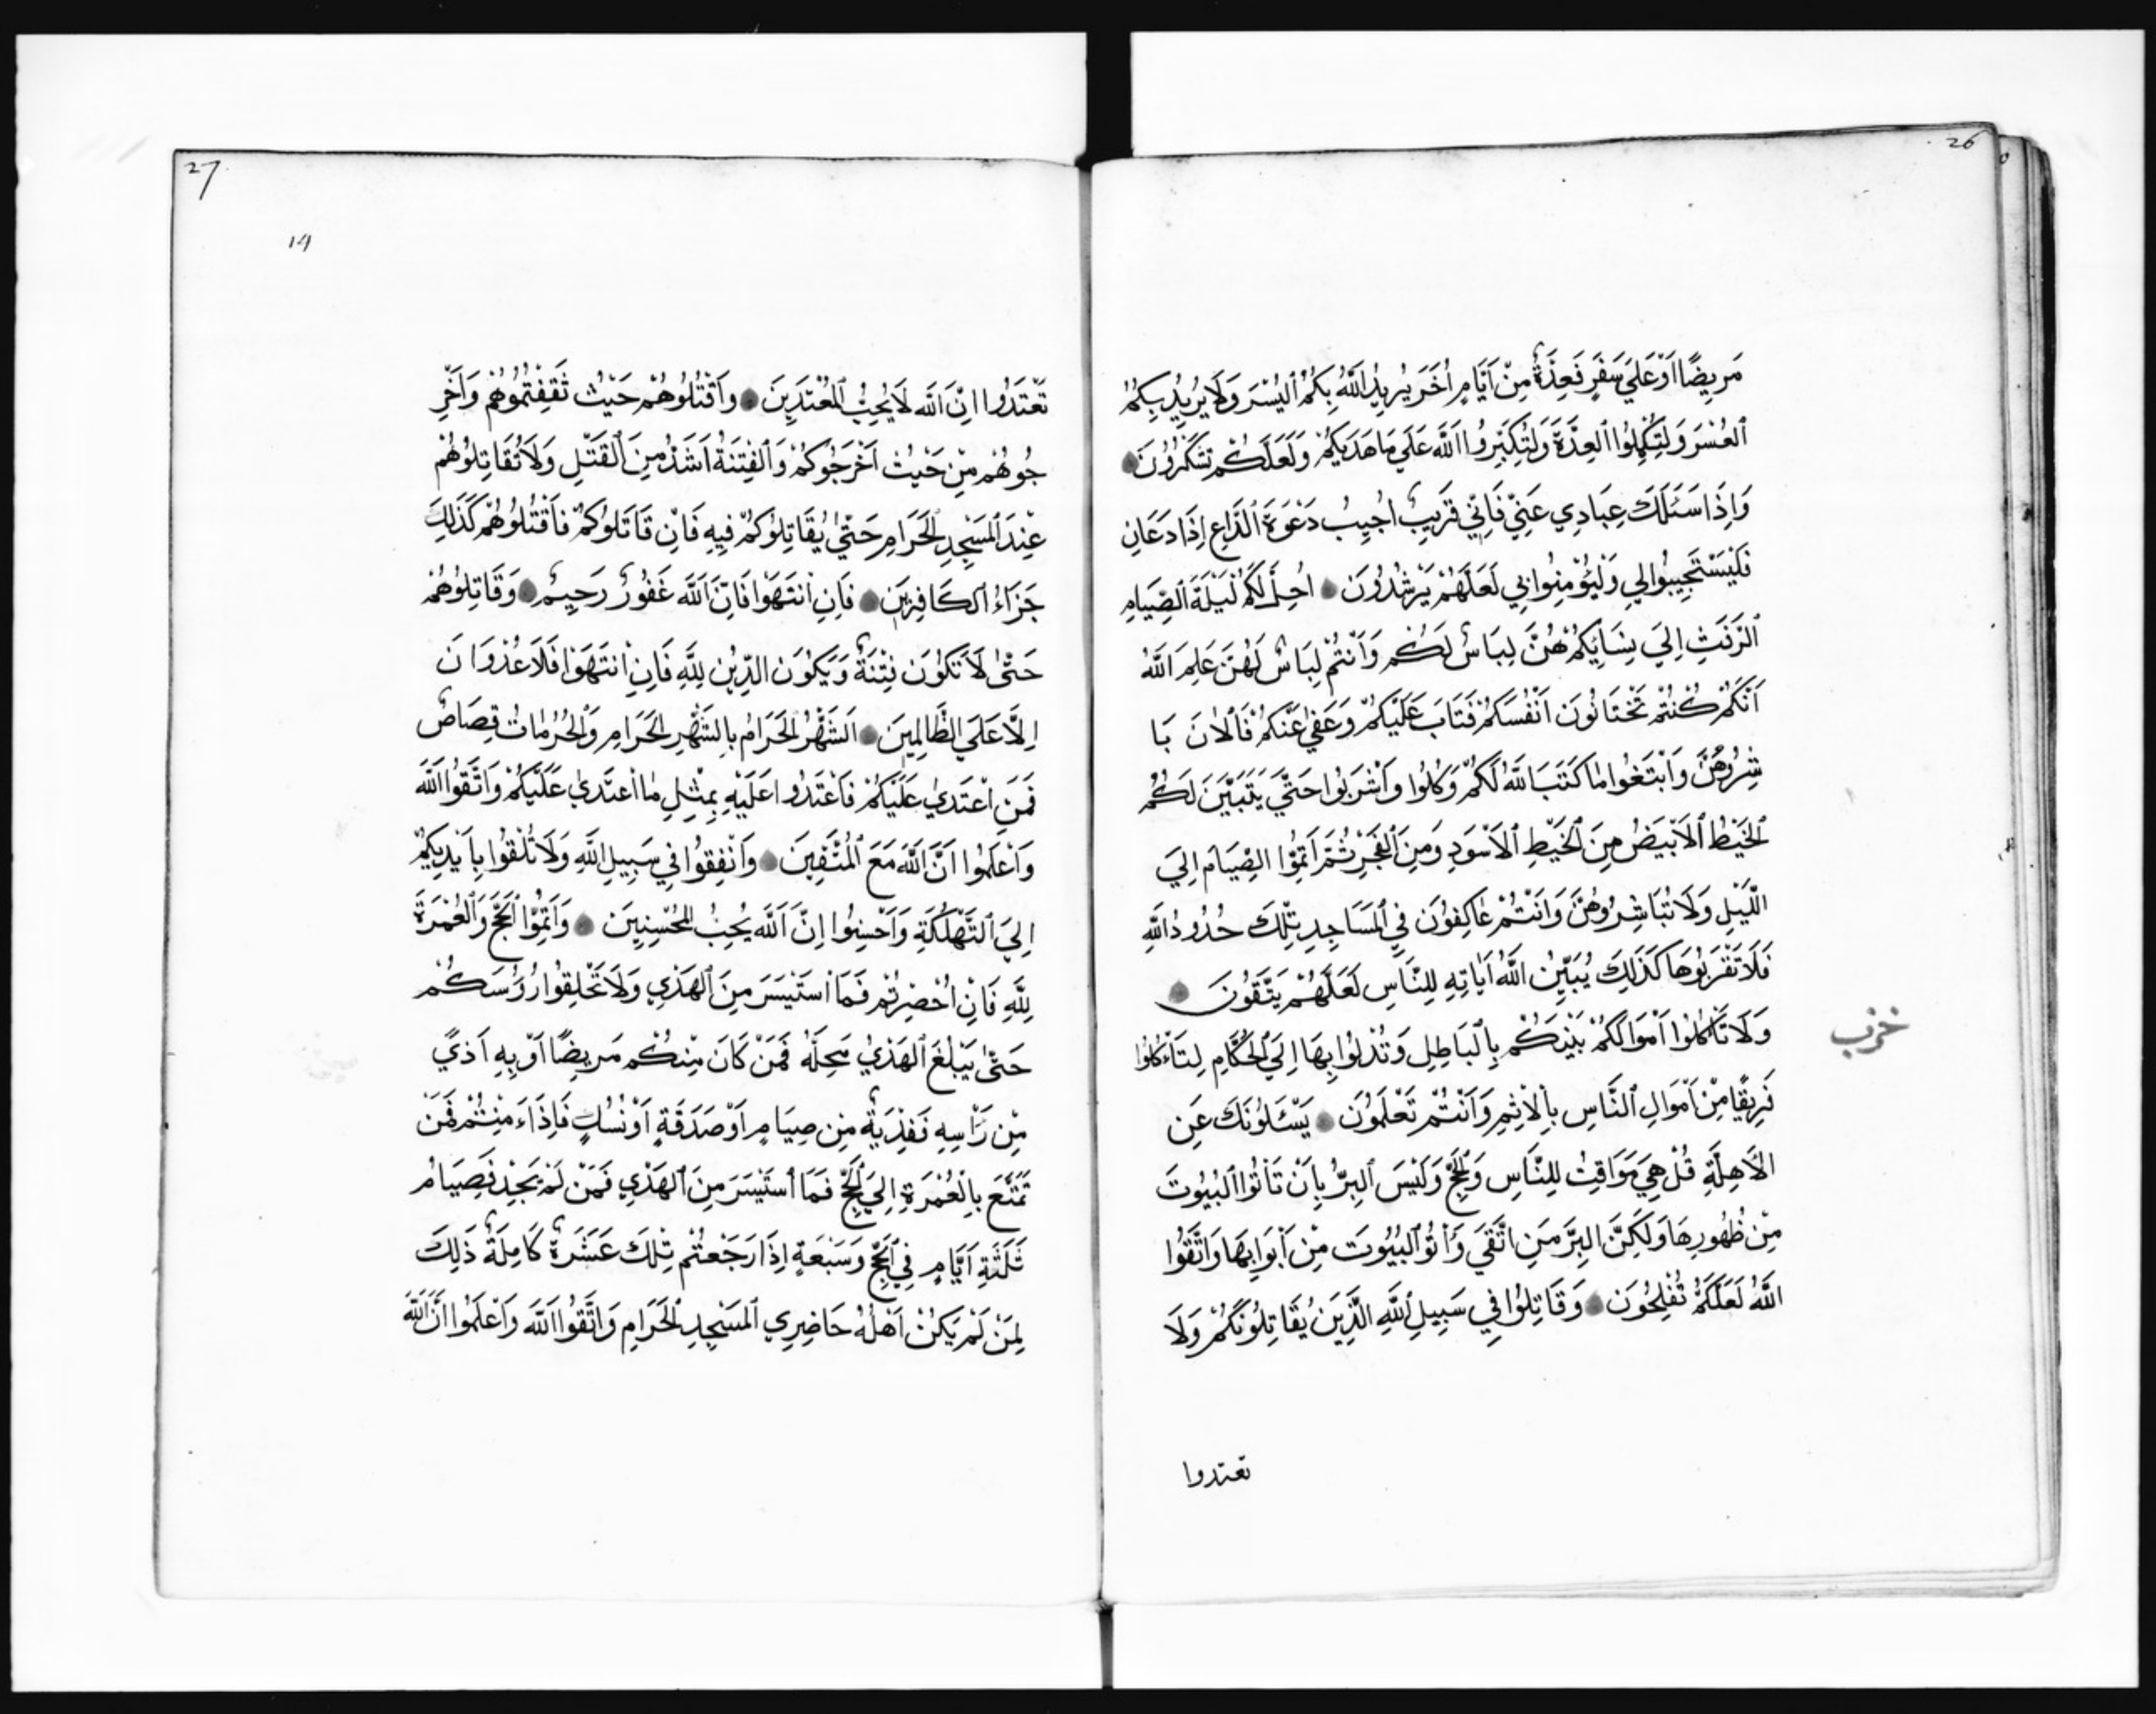 26
مَرِيضًا اَوْ عَلَي سَفَرٍ فَعِدَّةٌ مِنْ اَيَّامٍ اُخَرَ يُرِيدُ اللّٰهُ بِكُمُ الْيُسْرَ وَلَا يُرِيدُ بِكُمُ
الْعُسْرَ وَلِتُكْمِلُوا الْعِدَّةَ وَلِتُكَبِّرُوا اللّٰهَ عَلَي مَا هَدَيكُمْ وَلَعَلَّكُمْ تَشْكُرُونَ
وَاِذَا سَئَلَكَ عِبَادِي عَنِّي فَاِنِّي قَرِيبٌ اُجِيبُ دَعْوَةَ الدَّاعِ اِذَا دَعَانِ
فَلْيَسْتَجِيبُوا لِي وَلْيُؤْمِنُوا بِي لَعَلَّهُمْ يَرْشُدُونَ اُحِلَّ لَكُمْ لَيْلَةَ الصِّيَامِ
الرَّفَثِ اِلَي نِسَائِكُمْ هُنَّ لِبَاسٌ لَكُمْ وَاَنْتُمْ لِبَاسٌ لَهُنَّ عَلِمَ اللّٰهُ
اَنَّكُمْ كُنْتُمْ تَخْتَانُونَ اَنْفُسَكُمْ فَتَابَ عَلَيْكُمْ وَعَفٰي عَنْكُمْ فَالْاٰنَ بَا
شِرُوهُنَّ وَابْتَغُوا مٰا كَتَبَ اللّٰهُ لَكُمْ وَكُلُوا وَاشْرَبُوا حَتَّي يَتَبَيَّنَ لَكُمُ
الْخَيْطُ الْاَبْيَضُ مِنَ الْخَيْطِ الْاَسْوَدِ وَمِنَ الْفَجْرِ ثُمَّ اَتِمُّوا الصِّيَامَ اِلَي
اللَّيْلِ وَلَا تُبَاشِرُوهُنَّ وَاَنْتُمْ عٰاكِفُونَ فِي الْمَسَاجِدِ تِلْكَ حُدُودُ اللّٰهِ
فَلَا تَقْرَبُوهَا كَذَلِكَ يُبَيِّنُ اللّٰهُ اٰيَاتِهِ لِلنَّاسِ لَعَلَّهُمْ يَتَّقُونَ
وَلَا تَأْكُلُوا اَمْوَالَكُمْ بَيْنَكُمْ بِالْبَاطِلِ وَتُدْلُوا بِهَا اِلَي الْحُكَّامِ لِتَاْكُلُوا
حزب
فَرِيقًا مِنْ اَمْوَالِ النَّاسِ بِالْاِثْمِ وَاَنْتُمْ تَعْلَمُونَ يَسْئَلُونَكَ عَنِ
الْاَهِلَّةِ قُلْ هِيَ مَوَاقِتُ لِلنَّاسِ وَالْحَجِّ وَلَيْسَ الْبِرُّ بِاَنْ تَاْتُوا الْبُيُوتَ
مِنْ ظُهُورِهَا وَلَكِنَّ الْبِرَّ مَنِ اتَّقَي وَاْتُو الْبُيُوتَ مِنْ اَبْوَابِهَا وَاتَّقُوا
اللّٰهَ لَعَلَّكُمْ تُفْلِحُونَ وَقَاتِلُوا فِي سَبِيلِ اللّٰهِ الَّذِينَ يُقَاتِلُونَكُمْ وَلَا
تعتدوا
27
14
تَعْتَدُوا اِنَّ اللّٰهَ لَا يُحِبُّ الْمُعْتَدِينَ وَاقْتُلُوهُمْ حَيْثُ ثَقِفْتُمُوهُمْ وَاَخْرِ
جُوهُمْ مِنْ حَيْثُ اَخْرَجُوكُمْ وَالْفِتْنَةُ اَشَدُّ مِنَ الْقَتْلِ وَلَا تُقَاتِلُوهُمْ
عِنْدَ الْمَسْجِدِ الْحَرَامِ حَتّٰي يُقَاتِلُوكُمْ فِيهِ فَاِنْ قَاتَلُوكُمْ فَاقْتُلُوهُمْ كَذَلِكَ
جَزَاءُ الْكَافِرِينَ فَاِنِ انْتَهَوْا فَاِنَّ اللّٰهَ غَفُورٌ رَحِيمٌ وَقَاتِلُوهُمْ
حَتّٰي لَا تَكُونَ فِتْنَةٌ وَيَكُونَ الدِّينُ لِلّٰهِ فَاِنِ انْتَهَوْا فَلَا عُدْوَانَ
اِلَّا عَلَي الظَّالِمِينَ اَلشَّهْرُ الْحَرَامُ بِالشَّهْرِ الْحَرَامِ وَالْحُرُمٰاتُ قِصَاصٌ
فَمَنِ اعْتَدٰي عَلَيْكُمْ فَاعْتَدُوا عَلَيْهِ بِمِثْلِ مٰا اعْتَدٰي عَلَيْكُمْ وَاتَّقُوا اللّٰهَ
وَاعْلَمُوا اَنَّ اللّٰهَ مَعَ الْمُتَّقِينَ وَاَنْفِقُوا فِي سَبِيلِ اللّٰهِ وَلَا تُلْقُوا بِاَيْدِيكُمْ
اِلَي التَّهْلُكَةِ وَاَحْسِنُوا اِنَّ اللّٰهَ يُحِبُّ الْمُحْسِنِينَ وَاَتِمُّوا الْحَجَّ وَالْعُمْرَةَ
لِلّٰهِ فَاِنْ اُحْصِرْتُمْ فَمَا اسْتَيْسَرَ مِنَ الْهَدْيِ وَلَا تَحْلِقُوا رُؤُسَكُمْ
حَتّٰي يَبْلُغَ الْهَدْيُ مَحِلَّهُ فَمَنْ كَانَ مِنْكُمْ مَرِيضًا اَوْ بِهِ اَذًي
مِنْ رَاْسِهِ فَفِدْيَةٌ مِنْ صِيَامٍ اَوْ صَدَقَةٍ اَوْ نُسُكٍ فَاِذَا ءَمِنْتُمْ فَمَنْ
تَمَتَّعَ بِالْعُمْرَةِ اِلَي الْحَجِّ فَمَا اسْتَيْسَرَ مِنَ الْهَدْيِ فَمَنْ لَمْ يَجِدْ فَصِيَامُ
ثَلَثَةِ اَيَّامٍ فِي الْحَجِّ وَسَبْعَةٍ اِذَا رَجَعْتُمْ تِلْكَ عَشَرَةٌ كَامِلَةٌ ذَلِكَ
لِمَنْ لَمْ يَكُنْ اَهْلُهُ حَاضِرِي الْمَسْجِدِ الْحَرَامِ وَاتَّقُوا اللّٰهَ وَاعْلَمُوا اَنَّ اللّٰهَ